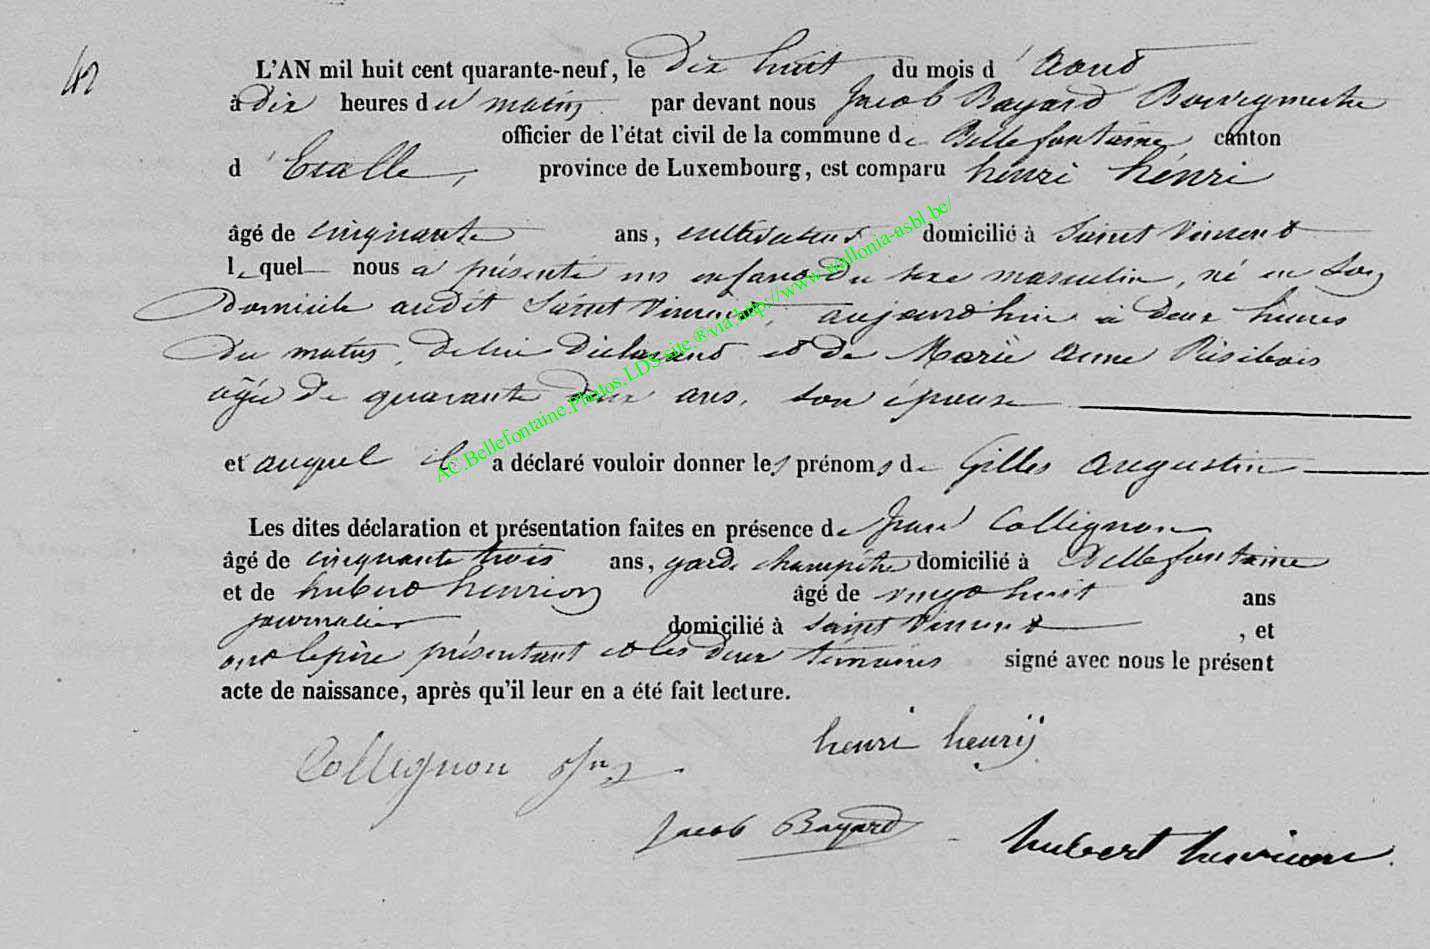 42
L'AN mil huit cent quarante-neuf, le dix huit du mois d'Aout
à dix heures du matin par devant nous Jacob Bayard Bourgmestre
officier de l'état civil de la commune de Bellefontaine canton
d'Etalle, province de Luxembourg, est comparu henri hénri
âgé de cinquante ans, cultivateur domicilié à Saint Vincent
lequel nous a présenté un enfant du sexe masculin, né en son
domicile audit Saint Vincent, aujourd'hui à deux heures
du matin, de lui déclarant et de Marie Anne
agée de quarante deux ans, son épouse
et auquel il a déclaré vouloir donner les prénoms de Gilles Augustin
Les dites déclaration et présentation faites en présence de Collignon
âgé de cinquante trois ans, garde champêtre domicilié à Bellefontaine
et de hubert henrion âgé de vingt huit ans
journalier domicilié à Saint Vincent, et
ont le père présentant et les deux témoins signé avec nous le présent
acte de naissance, après qu'il leur en a été fait lecture.
henri henrÿ
Collignon
Jacob Bayard
hubert henrion
AC.Bellefontaine.Photos.LDS-site.®via.http://www.wallonia-asbl.be/